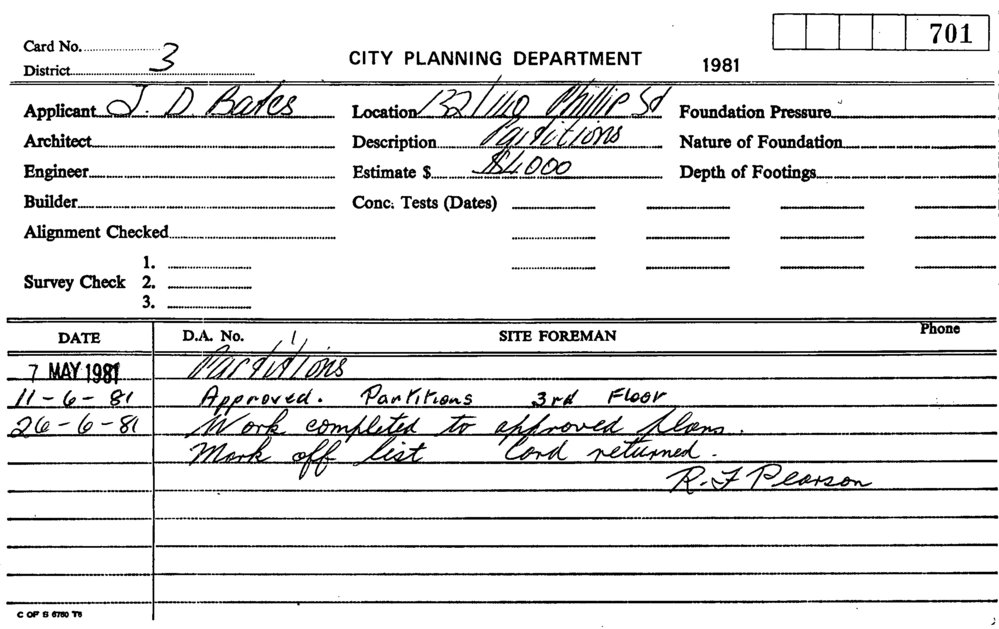 701
Card No. 3
District
CITY PLANNING DEPARTMENT 1981
Applicant J. D. Bates Location 132/140 Phillip St Foundation Pressure
Architect Description Partitions Nature of Foundation
Engineer Estimate $ $4000 Depth of Footings
Builder Conc. Tests (Dates)
Alignment Checked
1.
Survey Check 2.
3.
DATE D.A. No. SITE FOREMAN Phone
7 MAY 1981 Partitions
11-6-81 Approved. Partitions 3rd Floor
26-6-81 Work completed to approved plans.
Mark off list Card returned.
R. F Pearson
C OF S 6760 T6